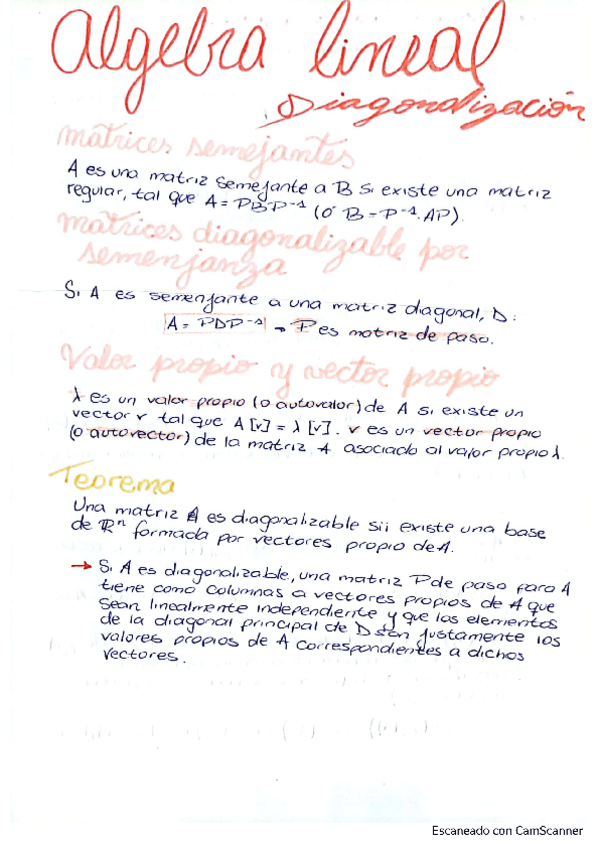 algebra lineal
Diagonalización
matrices semejantes
A es una matriz semejante a B si existe una matriz
regular, tal que A = PBP⁻¹ (o B = P⁻¹.AP).
matrices diagonalizable por
semenjanza
Si A es semenjante a una matriz diagonal, D:
A = PDP⁻¹ → P es matriz de paso.
Valor propio y vector propio
λ es un valor propio (o autovalor) de A si existe un
vector v tal que A [v] = λ [v]. v es un vector propio
(o autovector) de la matriz A asociado al valor propio λ.
Teorema
Una matriz A es diagonalizable sii existe una base
de ℝⁿ formada por vectores propio de A.
→ Si A es diagonalizable, una matriz P de paso para A
tiene como columnas a vectores propios de A que
sean linealmente independiente y que los elementos
de la diagonal principal de D sean justamente los
valores propios de A correspondientes a dichos
vectores.
Escaneado con CamScanner